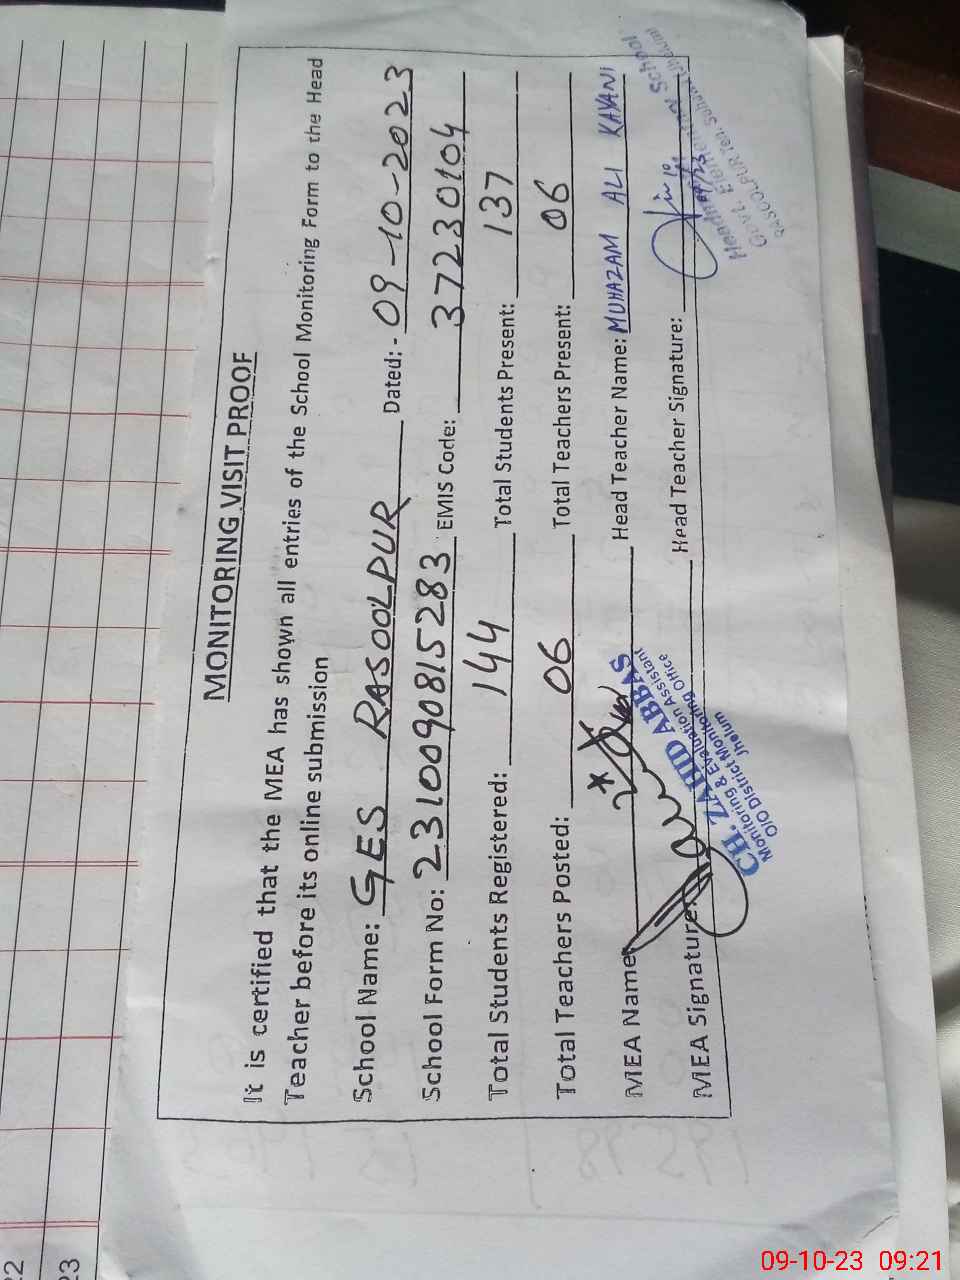 MONITORING VISIT PROOF
It is certified that the MEA has shown all entries of the School Monitoring Form to the Head
Teacher before its online submission
School Name: GES RASOOLPUR Dated:- 09-10-2023
School Form No: 2310090815283 EMIS Code: 37230104
Total Students Registered: 144 Total Students Present: 137
Total Teachers Posted: 06 Total Teachers Present: 06
MEA Name Head Teacher Name: MUHAZAM ALI KAYANI
MEA Signature Head Teacher Signature:
CH. ZAHID ABBAS
Monitoring & Evaluation Assistant
O/O District Monitoring Office
Jhelum
Govt. Elementary School
RASOOLPUR Teh.
22
23
09-10-23 09:21